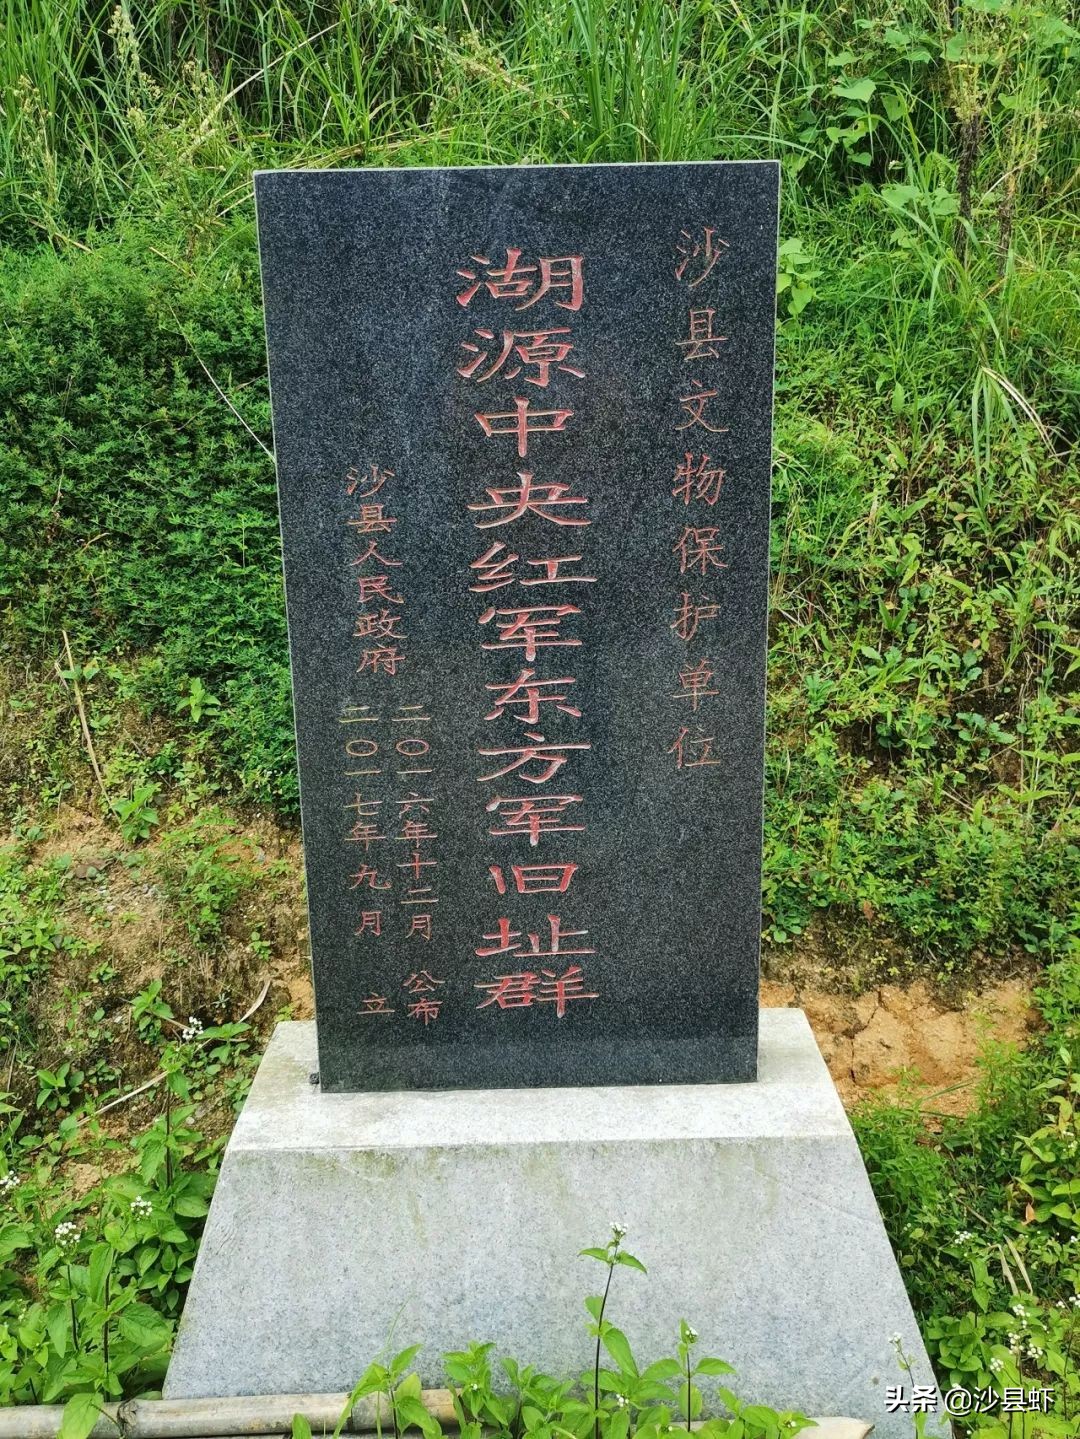 沙县文物保护单位
湖源中央红军东方军旧址群
沙县人民政府
二〇一六年十二月 公布
二〇一七年九月 立
头条 @沙县虾